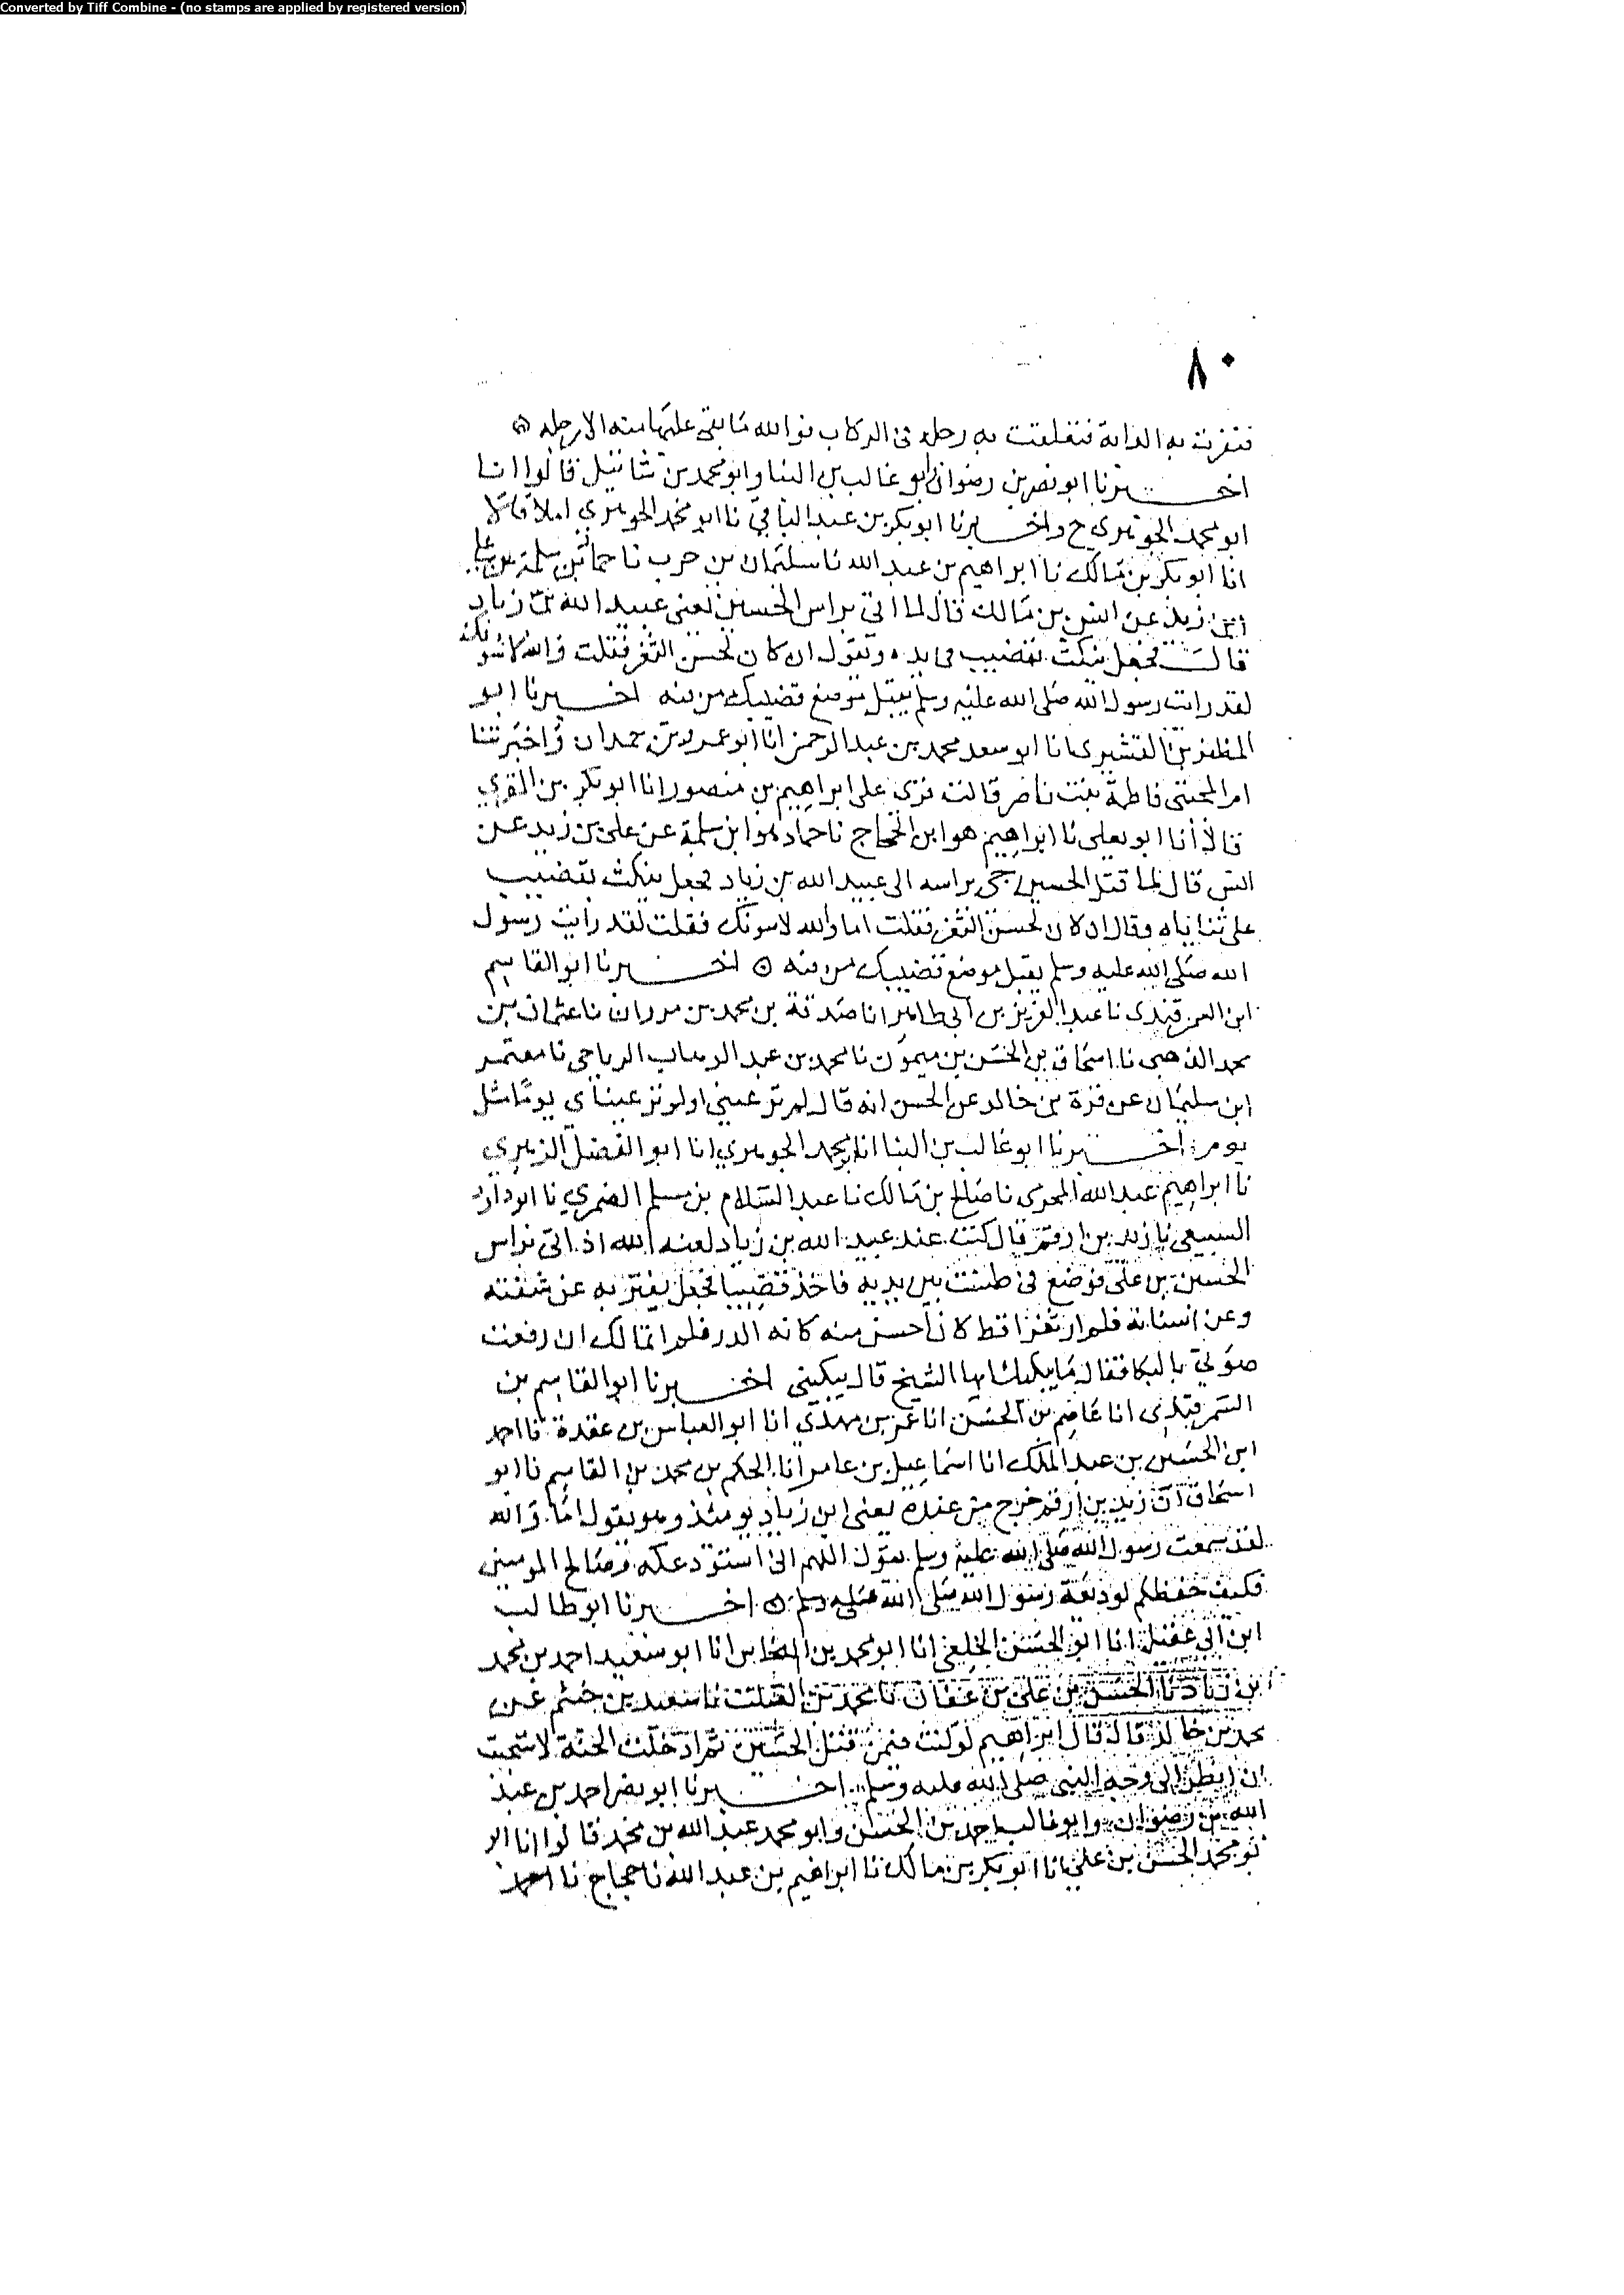 Converted by Tiff Combine - (no stamps are applied by registered version)
٨٠
فنفرت به الدابة فتعلقت به رجله في الركاب فوالله ما بقي عليها منه الا رجله
اخبرنا ابو نصر بن رضوان وابو غالب بن البنا وابو محمد بن شاتيل قالوا انا
ابو محمد الجوهري ح واخبرنا ابو بكر بن عبد الباقي نا ابو محمد الجوهري املا قالا
انا ابو بكر بن مالك نا ابراهيم بن عبد الله نا سليمان بن حرب نا حماد بن سلمة عن علي
ابن زيد عن انس بن مالك قال لما اتي براس الحسين يعني عبيد الله بن زياد
قال فجعل ينكت بقضيب في يده ويقول ان كان لحسن الثغر فقلت والله لاسونك
لقد رايت رسول الله صلى الله عليه وسلم يقبل موضع قضيبك من فيه اخبرنا ابو
المظفر بن القشيري انا ابو سعد محمد بن عبد الرحمن انا ابو عمرو بن حمدان واخبرتنا
ام المجتبى فاطمة بنت ناصر قالت قرى على ابراهيم بن منصور انا ابو بكر بن المقري
قالا انا ابو يعلى نا ابراهيم هو ابن الحجاج نا حماد هو ابن سلمة عن علي بن زيد عن
انس قال لما قتل الحسين جي براسه الى عبيد الله بن زياد فجعل ينكث بقضيب
على ثناياه وقال ان كان لحسن الثغر فقلت اما والله لاسونك فقلت لقد رايت رسول
الله صلى الله عليه وسلم يقبل موضع قضيبك من فيه اخبرنا ابو القاسم
ابن السمرقندي نا عبد العزيز بن ابي طاهر انا صدقة بن محمد بن مروان نا عثمان بن
محمد الذهبي نا اسحاق بن الحسن بن ميمون نا محمد بن عبد الوهاب الرياحي نا معتمر
ابن سليمان عن قرة بن خالد عن الحسن انه قال لم تر عيني او لم تر عيناي يوما مثل
يوم اخبرنا ابو غالب بن البنا انا ابو محمد الجوهري انا ابو الفضل الزهري
نا ابراهيم عبد الله المخرمي نا صالح بن مالك نا عبد السلام بن مسلم نا ابو داود
السبيعي نا زيد بن ارقم قال كنت عند عبيد الله بن زياد لعنه الله اذ اتي براس
الحسين بن علي فوضع في طست بين يديه فاخذ قضيبا فجعل يفتر به عن شفته
وعن اسنانه فلم ار ثغرا قط كان احسن منه كانه الدر فلم اتمالك ان رفعت
صوتي بالبكا فقال ما يبكيك ايها الشيخ قال يبكيني اخبرنا ابو القاسم بن
السمرقندي انا عاصم بن الحسن انا عمر بن مهدي انا ابو العباس بن عقدة نا احمد
ابن الحسين بن عبد الملك انا اسماعيل بن عامر انا الحكم بن محمد بن القاسم نا ابو
اسحاق ان زيد بن ارقم خرج من عنده يعني ابن زياد يومئذ وهو يقول اما والله
لقد سمعت رسول الله صلى الله عليه وسلم يقول اللهم اني استودعكه وصالح المومنين
فكيف حفظكم لوديعة رسول الله صلى الله عليه وسلم اخبرنا ابو طالب
ابن ابي عقيل انا ابو الحسن الخلعي انا ابو محمد بن النحاس انا ابو سعيد احمد بن محمد
ابن زياد نا الحسن بن علي بن عفان نا محمد بن الصلت نا سعيد بن خثيم عن
محمد بن خالد قال قال ابراهيم لو كنت فيمن قتل الحسين ثم ادخلت الجنة لاستحييت
ان انظر الى وجه النبي صلى الله عليه وسلم اخبرنا ابو نصر احمد بن عبد
الله بن رضوان وابو غالب احمد بن الحسن وابو محمد عبد الله بن محمد قالوا انا ابو
بو محمد الحسن بن علي انا ابو بكر بن مالك نا ابراهيم بن عبد الله نا حجاج نا